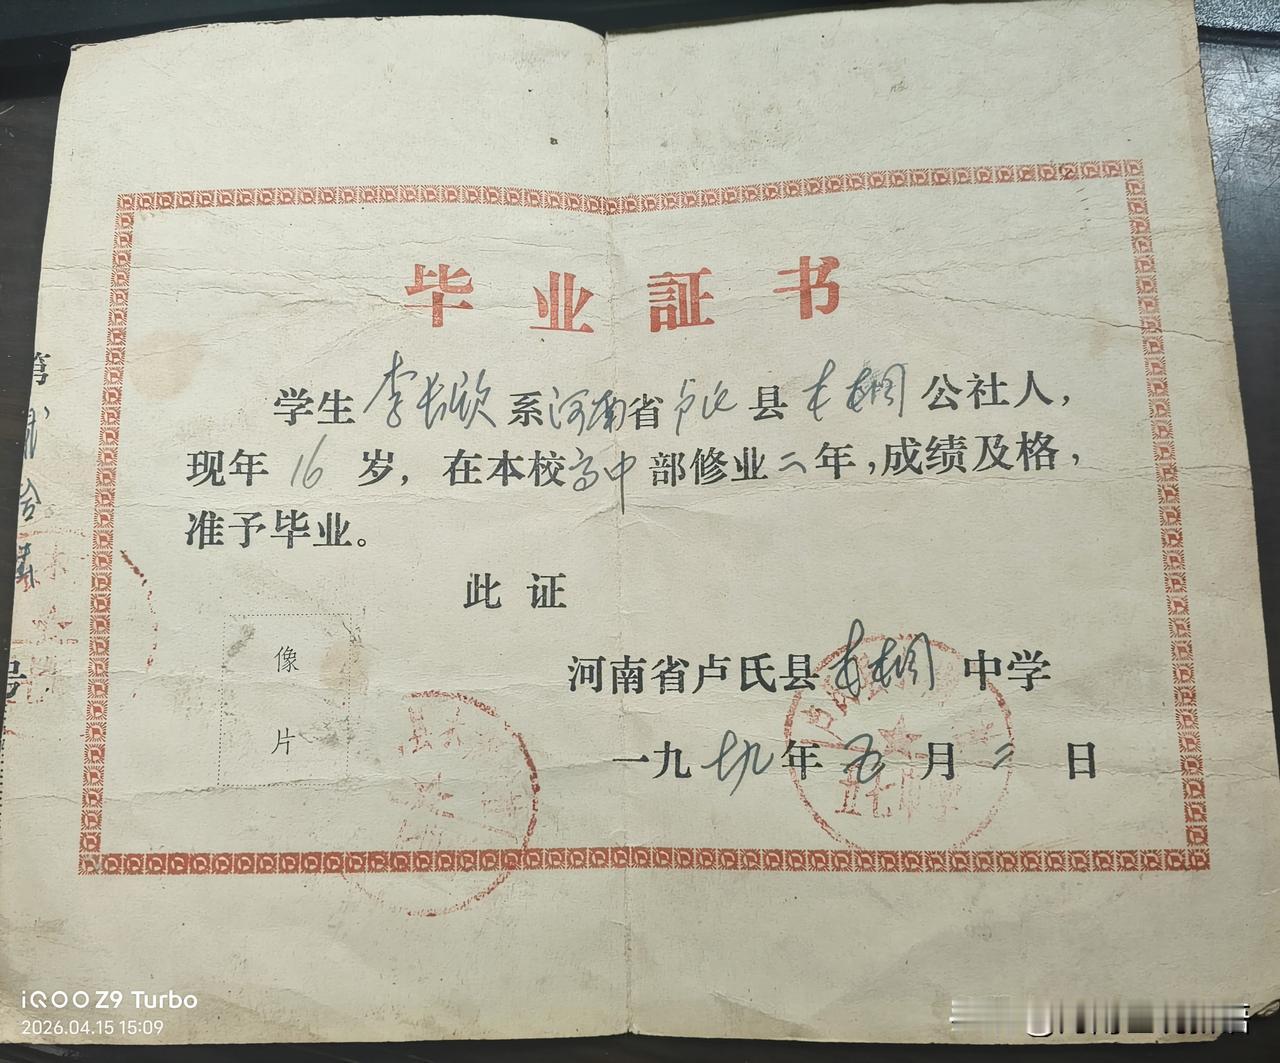 毕业証书
学生李长欣系河南省卢氏县公社人，
现年16岁，在本校高中部修业二年，成绩及格，
准予毕业。
此证
像
片
河南省卢氏县中学
一九七九年五月二日
第
号
iQOO Z9 Turbo
2026.04.15 15:09